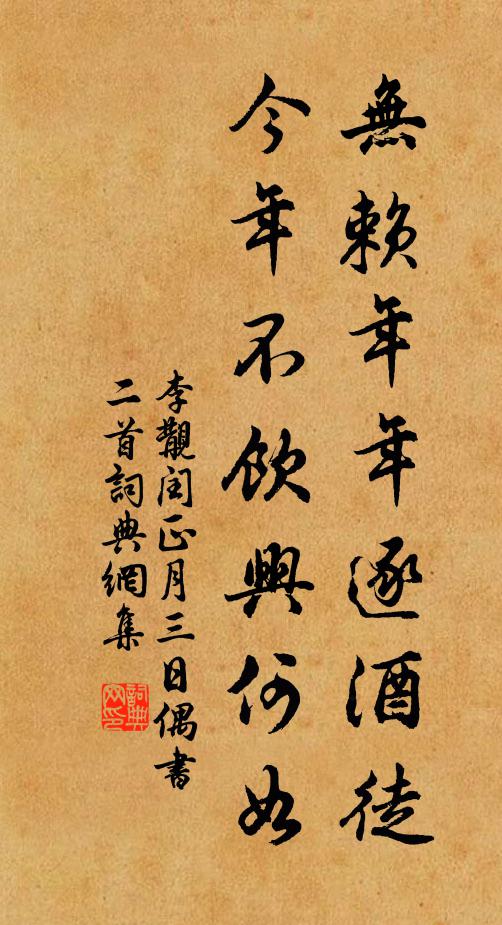 無賴年年逐酒徒
今年不飲興何如
李觀閏正月三日偶書
二首詞典網集
詞典
网印